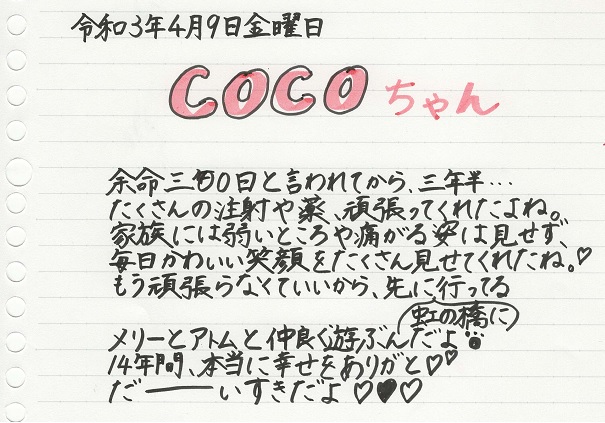 令和3年4月9日金曜日
COCOちゃん
余命三百日と言われてから、三年半…
たくさんの注射や薬、頑張ってくれたよね。
家族には弱いところや痛がる姿は見せず、
毎日かわいい笑顔をたくさん見せてくれたね。♡
もう頑張らなくていいから、先に行ってる
(虹の橋に)
メリーとアトムと仲良く遊ぶんだよ
14年間、本当に幸せをありがと♡♡
だ――いすきだよ♡♥♡